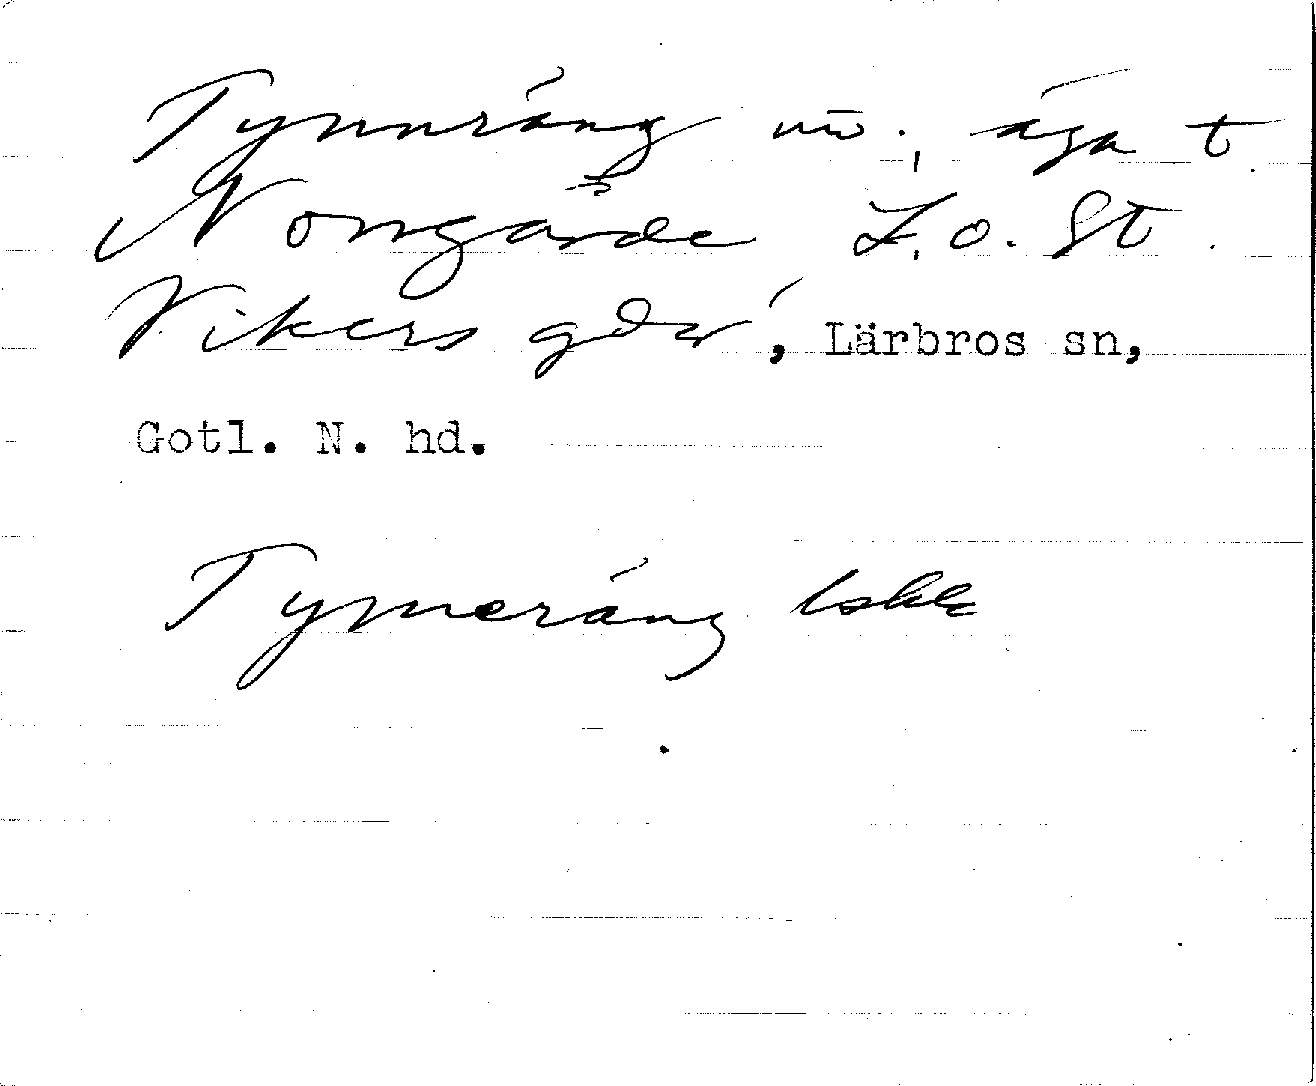 Tynnräng nū., äga t.
Norrgårde L. o. St.
Vikers gdr, Lärbros sn,
Gotl. N. hd.
Tymeräng lskk